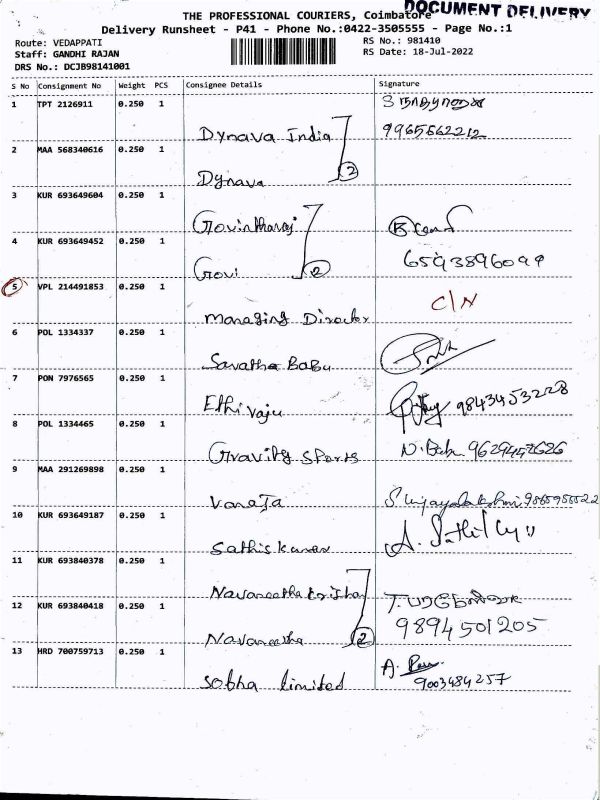 DOCUMENT DELIVERY
THE PROFESSIONAL COURIERS, Coimbatore
Delivery Runsheet - P41 - Phone No.:0422-3505555 - Page No.:1
Route: VEDAPPATI
Staff: GANDHI RAJAN
DRS No.: DCJB98141001
RS No.: 981410
RS Date: 18-Jul-2022
S No Consignment No Weight PCS Consignee Details Signature
1 TPT 2126911 0.250 1
Dynava India 9965662212
2 MAA 568340616 0.250 1
Dynava 2
3 KUR 693649604 0.250 1
Govintharaj
4 KUR 693649452 0.250 1
Govi 2
5 VPL 214491853 0.250 1
Managing Director C/N
6 POL 1334337 0.250 1
Savatha Babu
7 PON 7976565 0.250 1
Ethiraju 9843453228
8 POL 1334465 0.250 1
Gravity Sports N. Babu
9 MAA 291269898 0.250 1
Vanaja
10 KUR 693649187 0.250 1
Sathis Kumar
11 KUR 693840378 0.250 1
12 KUR 693840418 0.250 1
Navaneetha 2 9894501205
13 HRD 700759713 0.250 1
Sobha limited 9003484257